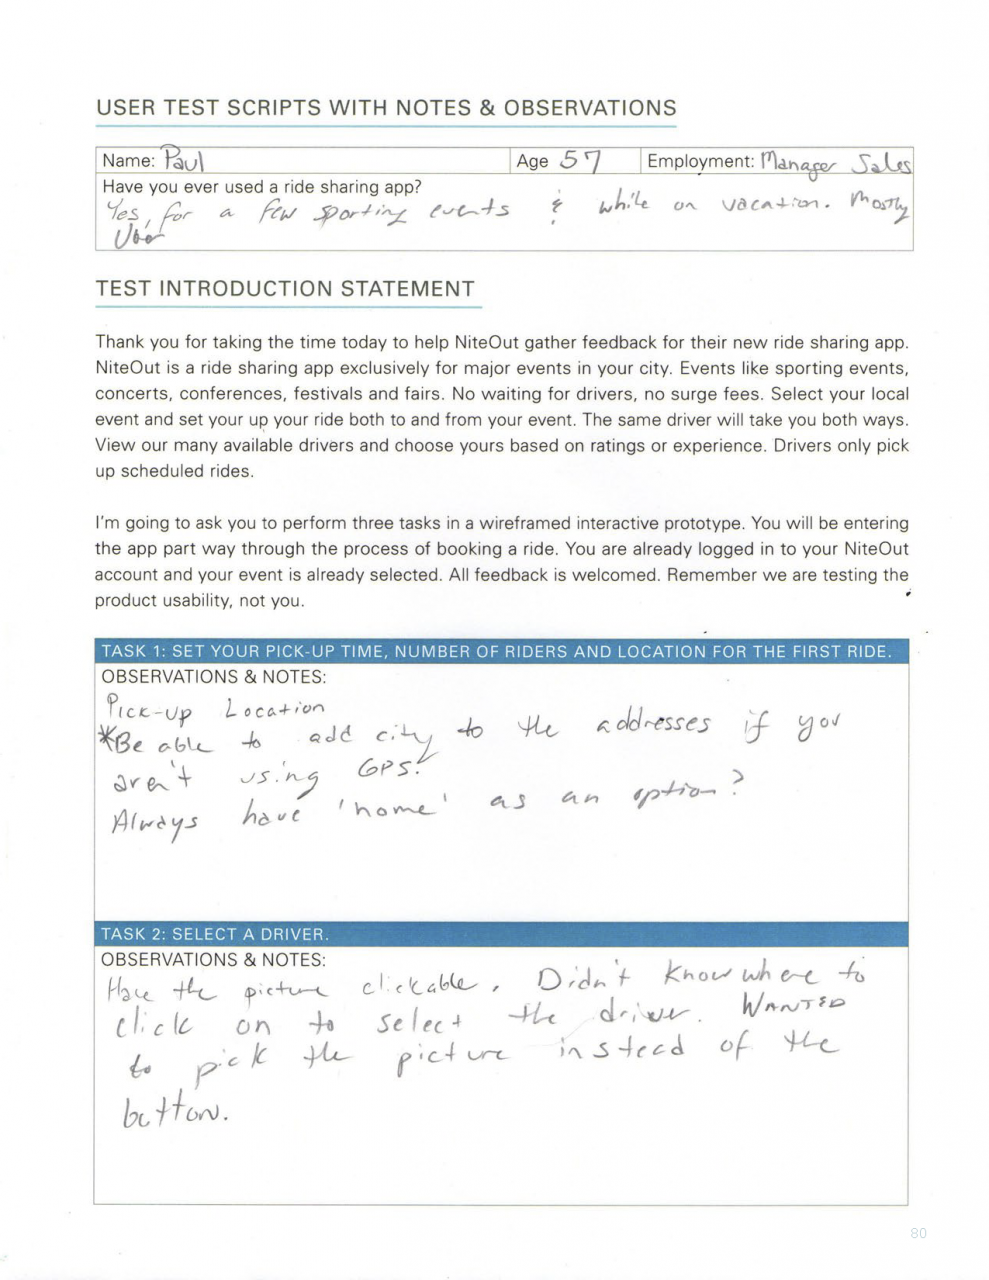 USER TEST SCRIPTS WITH NOTES & OBSERVATIONS
Name: Paul Age 57 Employment: Manager Sales
Have you ever used a ride sharing app?
Yes, for a few sporting events & while on vacation. Mostly
Uber
TEST INTRODUCTION STATEMENT
Thank you for taking the time today to help NiteOut gather feedback for their new ride sharing app.
NiteOut is a ride sharing app exclusively for major events in your city. Events like sporting events,
concerts, conferences, festivals and fairs. No waiting for drivers, no surge fees. Select your local
event and set your up your ride both to and from your event. The same driver will take you both ways.
View our many available drivers and choose yours based on ratings or experience. Drivers only pick
up scheduled rides.
I'm going to ask you to perform three tasks in a wireframed interactive prototype. You will be entering
the app part way through the process of booking a ride. You are already logged in to your NiteOut
account and your event is already selected. All feedback is welcomed. Remember we are testing the
product usability, not you.
TASK 1: SET YOUR PICK-UP TIME, NUMBER OF RIDERS AND LOCATION FOR THE FIRST RIDE.
OBSERVATIONS & NOTES:
Pick-up Location
*Be able to add city to the addresses if you
aren't using GPS.
Always have 'home' as an option?
TASK 2: SELECT A DRIVER.
OBSERVATIONS & NOTES:
Have the picture clickable. Didn't know where to
click on to select the driver. WANTED
to pick the picture instead of the
button.
80